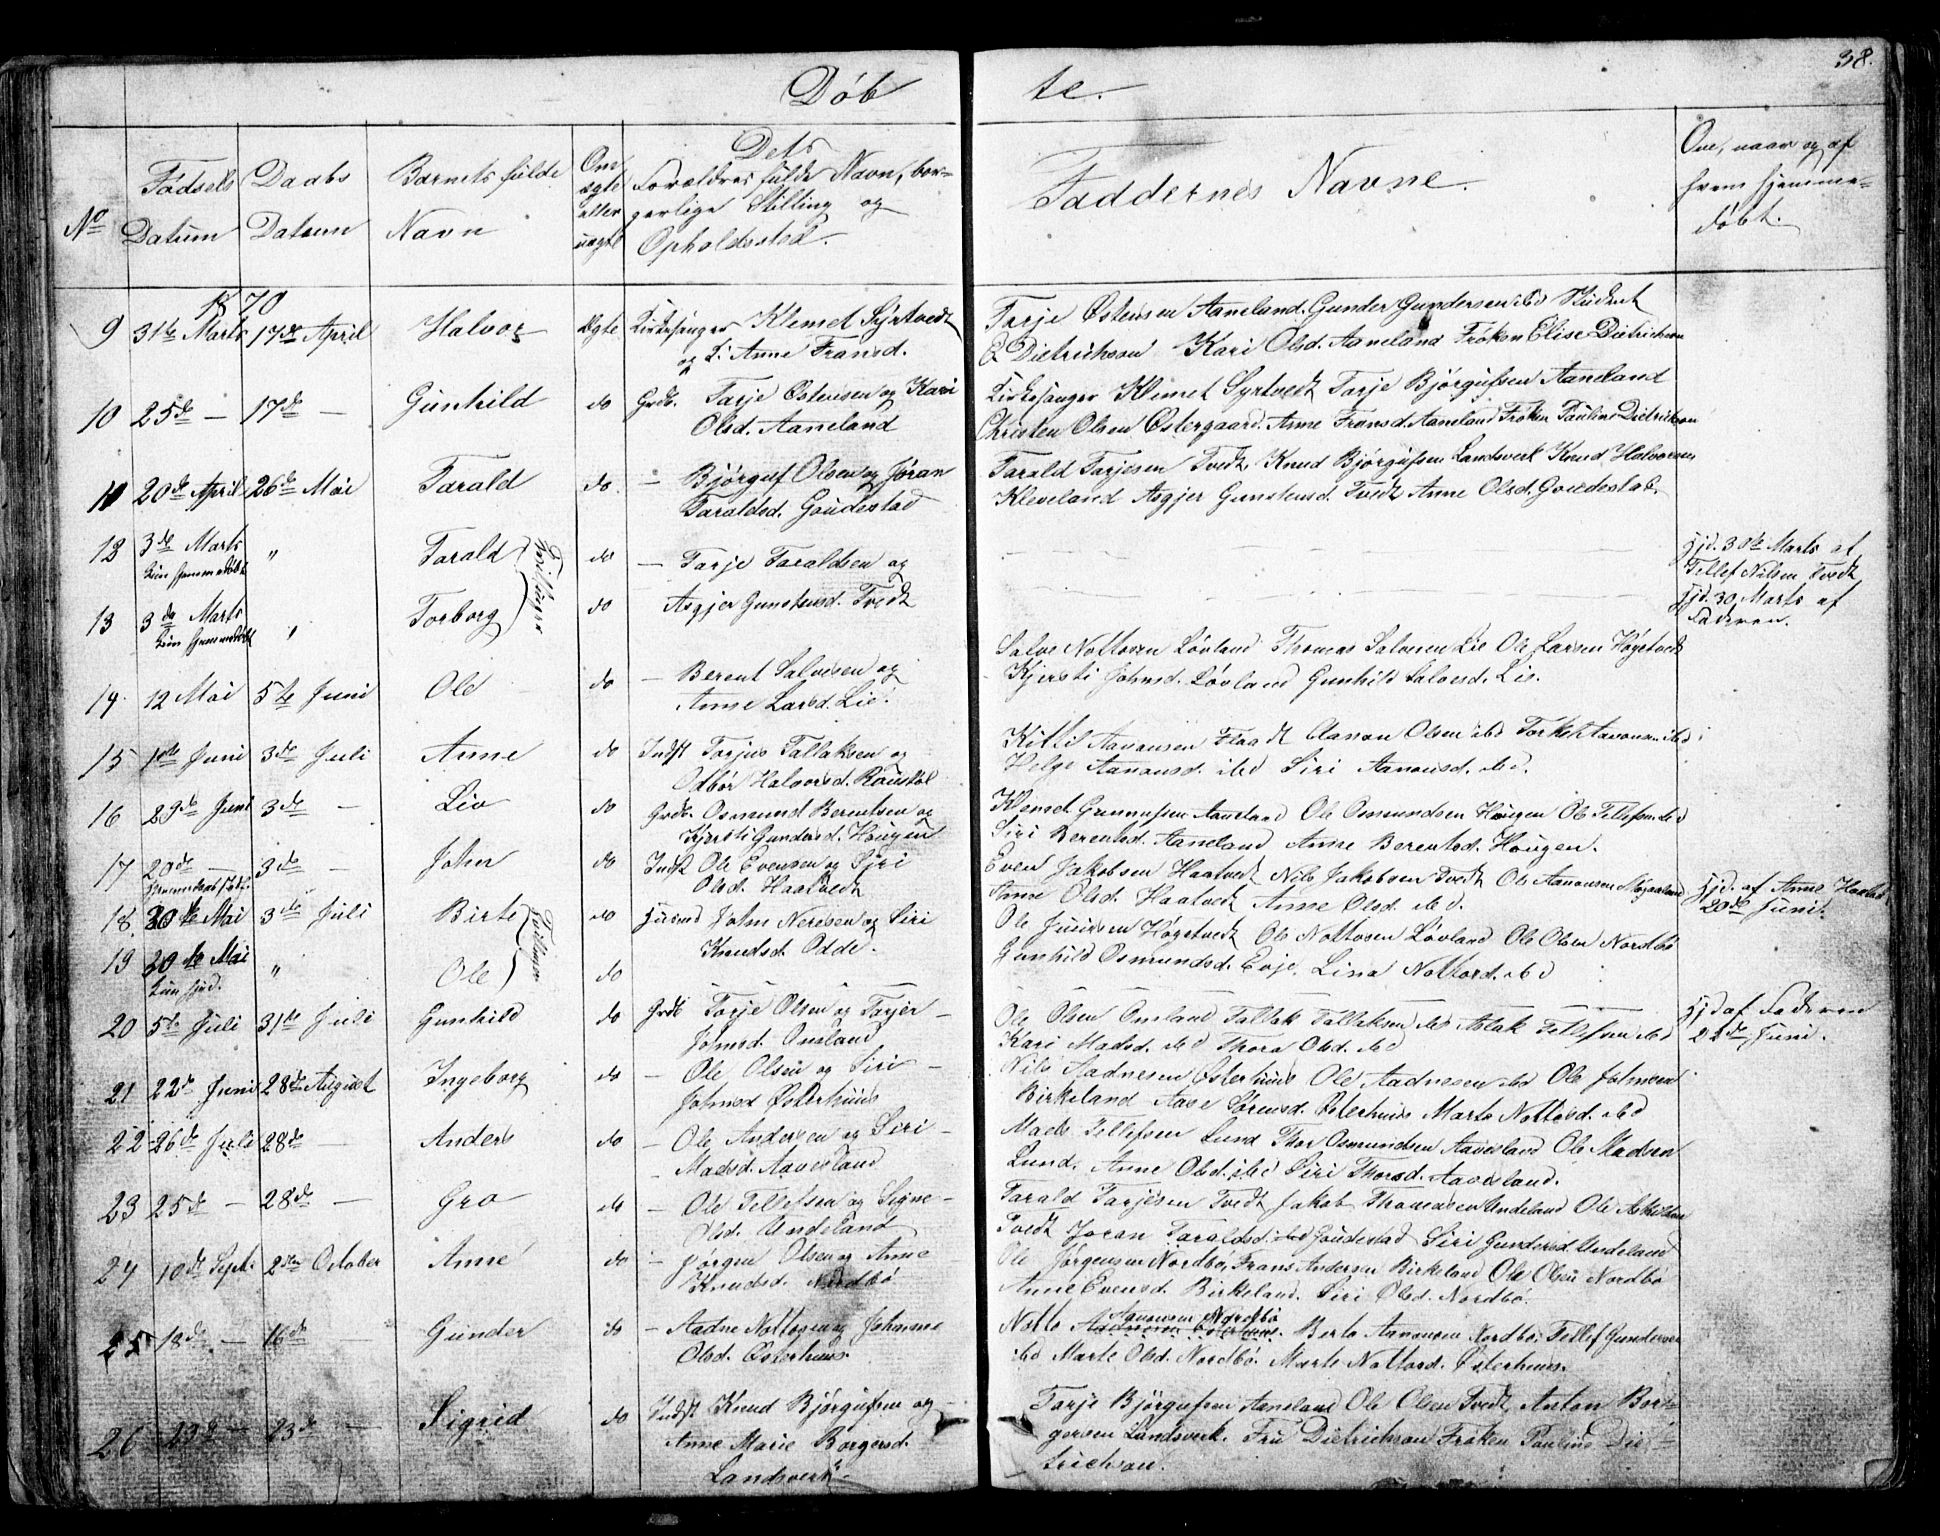 38.
Døb te.
No
Fødsels Datum
Daabs Datum
Barnets fulde Navn
Om ægte eller uægte
Dets Forældres fulde Navn, borgerlige Stilling og Opholdssted.
Faddernes Navne.
Om, naar og af hvem hjemmedøbt.
1870
9 31te Marts 17de April Halvor Ægte. Kirkesanger Klemet Syrtvedt
og K. Anne Fransd.
Torje Østensen Aaneland. Gunder Gundersen ibd Student
E Dietrichson Kari Olsd. Aaneland Frøken Elise Dietrichson
10 25de — 17de — Gunhild do Grdb. Torje Østensen og Kari
Olsd. Aaneland
Kirkesanger Klemet Syrtvedt Torje Bjørgufsen Aaneland
Christen Olsen Østergaard. Anne Fransd. Aaneland Frøken Pauline Dietrichson
11 20de April 26de Mai Tarald do. — Bjørguf Olsen og Jøran
Taraldsd. Goudestad
Tarald Torjesen Tvedt Knud Bjørgufsen Landsverk Knud Halvorsen
Kleveland Asgjer Gunstensd. Tvedt Anne Olsd. Goudestad.
12 3de Marts " Tarald Tvillinger do — Torje Taraldsen og
kun hjemmedøbt
hjd. 30te Marts af
Tellef Nilsen Tvedt
13 3de Marts " Torborg do Asgjer Gunstensd. Tvedt
kun hjemmedøbt
hjd. 30 Marts af
Faderen.
14. 12 Mai 5te Juni Ole do — Berent Salvesen og
Anne Larsd. Lie.
Salve Nottosen Løvland Thomas Salvesen Lie Ole Larsen Høgstvedt
Kjersti Johnsd. Løvland Gunhild Salvesd. Lie.
15 1ste Juni 3de Juli Anne do Indst Torjus Tallaksen og
Odbør Halvorsd. Røustøl
Kittil Aanonsen Flaadt Aanon Olsen ibd Torkel Aanonsen ibd
Helge Aanonsd. ibd Siri Aanonsd. ibd.
16 29de Juni 3de — Liv do Grdb. Osmund Berentsen og
Kjersti Gundersd. Hougen
Klemet Gunnufsen Aaneland Ole Osmundsen Hougen Ole Tellefsen ibd
Siri Berentsd. Aaneland Anne Berentsd. Hougen.
17 20de — 3de — John do Indst Ole Evensen og Siri
Olsd. Haatvedt
Even Jakobsen Haatvedt Nils Jakobsen Tvedt Ole Aanonsen
Anne Olsd. Haatvedt Anne Olsd. ibd.
hjd. af Anne
20de Juni.
18. 30te Mai 3de Juli Birte Tvillinger do John Neresen og Siri
Knudsd. Odde.
Ole Høgstvedt Ole Nottosen Løvland Ole Olsen Nordbø
Gunhild Osmundsd. Evje. Lina Nottosd. ibd
19 30te Mai " Ole do
kun hjd.
hjd af Faderen
22de Juni.
20 5te Juli 31te Juli Gunhild do Grdb Torje Olsen og Torjer
Johnsd. Omland
Ole Olsen Omland Tallak Tellefsen ibd Aslak Tellefsen ibd
Kari Madsd. ibd Thora Olsd. ibd
21 22de Juni 28de August Ingeborg do — Ole Olsen og Siri
Johnsd Østerhuus
Nils Aadnesen Østerhuus Ole Aadnesen ibd Ole Johnsen
Birkeland Aase Sørensd. Østerhuus Marte Nottosd. ibd
22 26de Juli 28de — Anders do — Ole Andersen og Siri
— Madsd. Aavesland
Mads Tellefsen Lund Thor Osmundsen Aavesland Ole Madsen
Lund. Anne Olsd. ibd Siri Thorsd. Aavesland.
23 25de — 28de — Gro do — Ole Tellefsen og Signe
Olsd. Undeland
Tarald Torjesen Tvedt Jakob Thomesen Undeland Ole
Tvedt Jøran Taraldsd. ibd Goudestad Siri Gundersd. Undeland
24 10de Septr 2den October Anne do — Jørgen Olsen og Anne
Knudsd. Nordbø
Ole Jørgensen Nordbø, Frans Andersen Birkeland Ole Olsen Nordbø
Anne Evensd. Birkeland. Siri Olsd. Nordbø.
25 18de — 16de — Gunder do — Aadne Nottosen og Johanne
Olsd. Østerhuus.
Notto Aanonsen Nordbø Berte Aanonsen Nordbø, Tellef Gundersen
ibd Marte Olsd. Nordbø. Marte Nottosd. Østerhuus.
26 23de — 23de — Sigrid do Indst Knud Bjørgufsen og
Anne Marie Borgersd.
Landsverk.
Torje Bjørgufsen Aaneland Ole Olsen Tvedt, Anton Bor-
gersen Landsverk. Fru Dietrichson Frøken Pauline Die-
trichson.